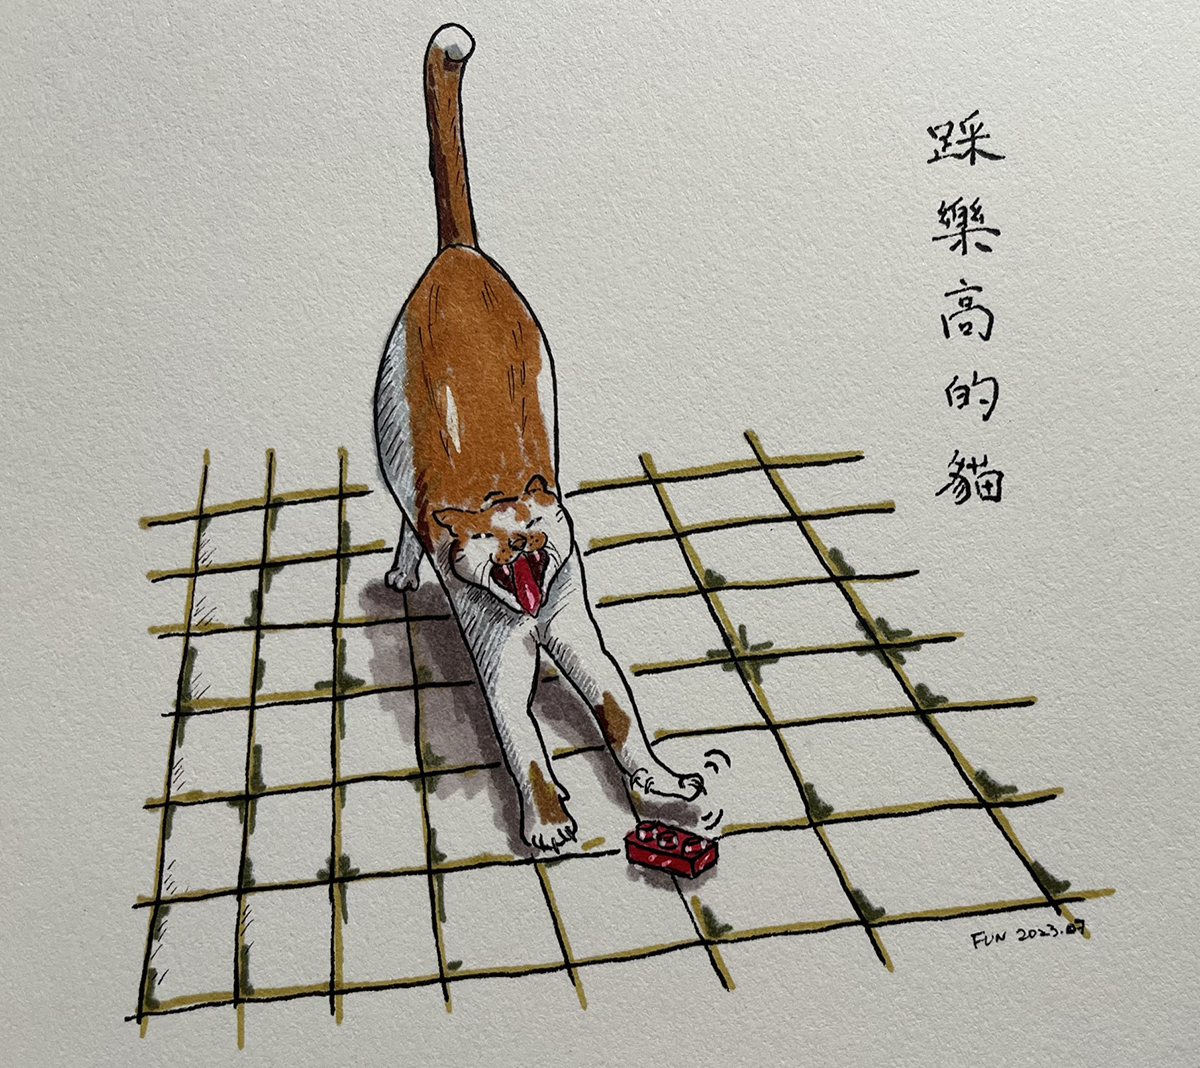 踩樂高的貓
FUN 2023.07